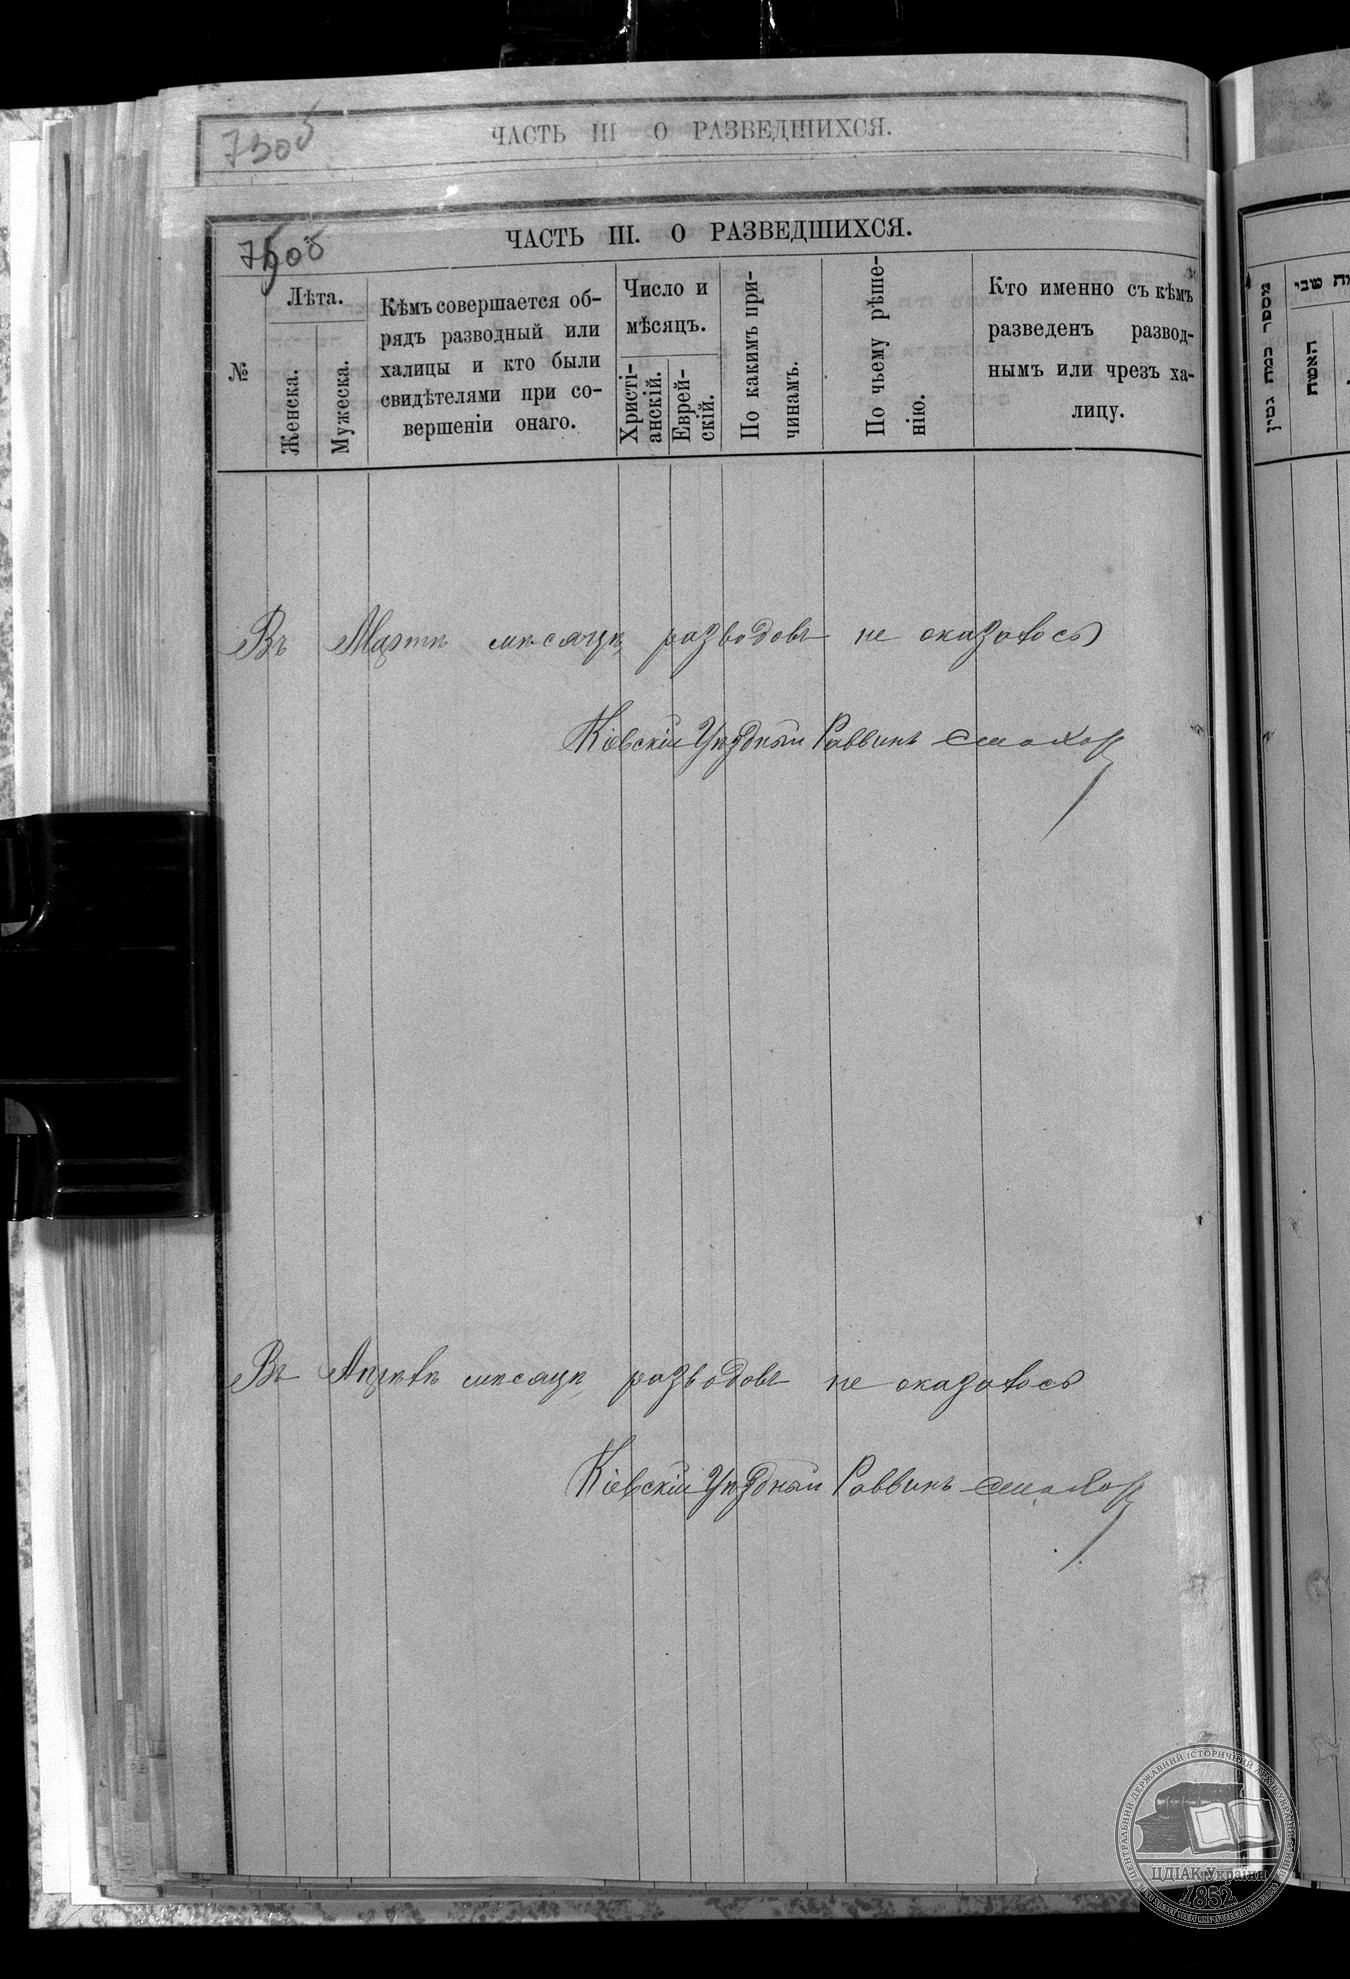 ЧАСТЬ III О РАЗВЕДШИХСЯ.
ЧАСТЬ III. О РАЗВЕДШИХСЯ.
№
Лѣта.
Женска.
Мужеска.
Кѣмъ совершается об-
рядъ разводный или
халицы и кто были
свидѣтелями при со-
вершеніи онаго.
Число и
мѣсяцъ.
Христі-
анскій.
Еврей-
скій.
По какимъ при-
чинамъ.
По чьему рѣше-
нію.
Кто именно съ кѣмъ
разведенъ развод-
нымъ или чрезъ ха-
лицу.
Въ Мартѣ мѣсяцѣ разводовъ не оказалось
Кіевскій Уѣздный Раввинъ
Въ Апрѣлѣ мѣсяцѣ разводовъ не оказалось
Кіевскій Уѣздный Раввинъ
מספר כמה גטין
האשה
ЦДІАК України
1852